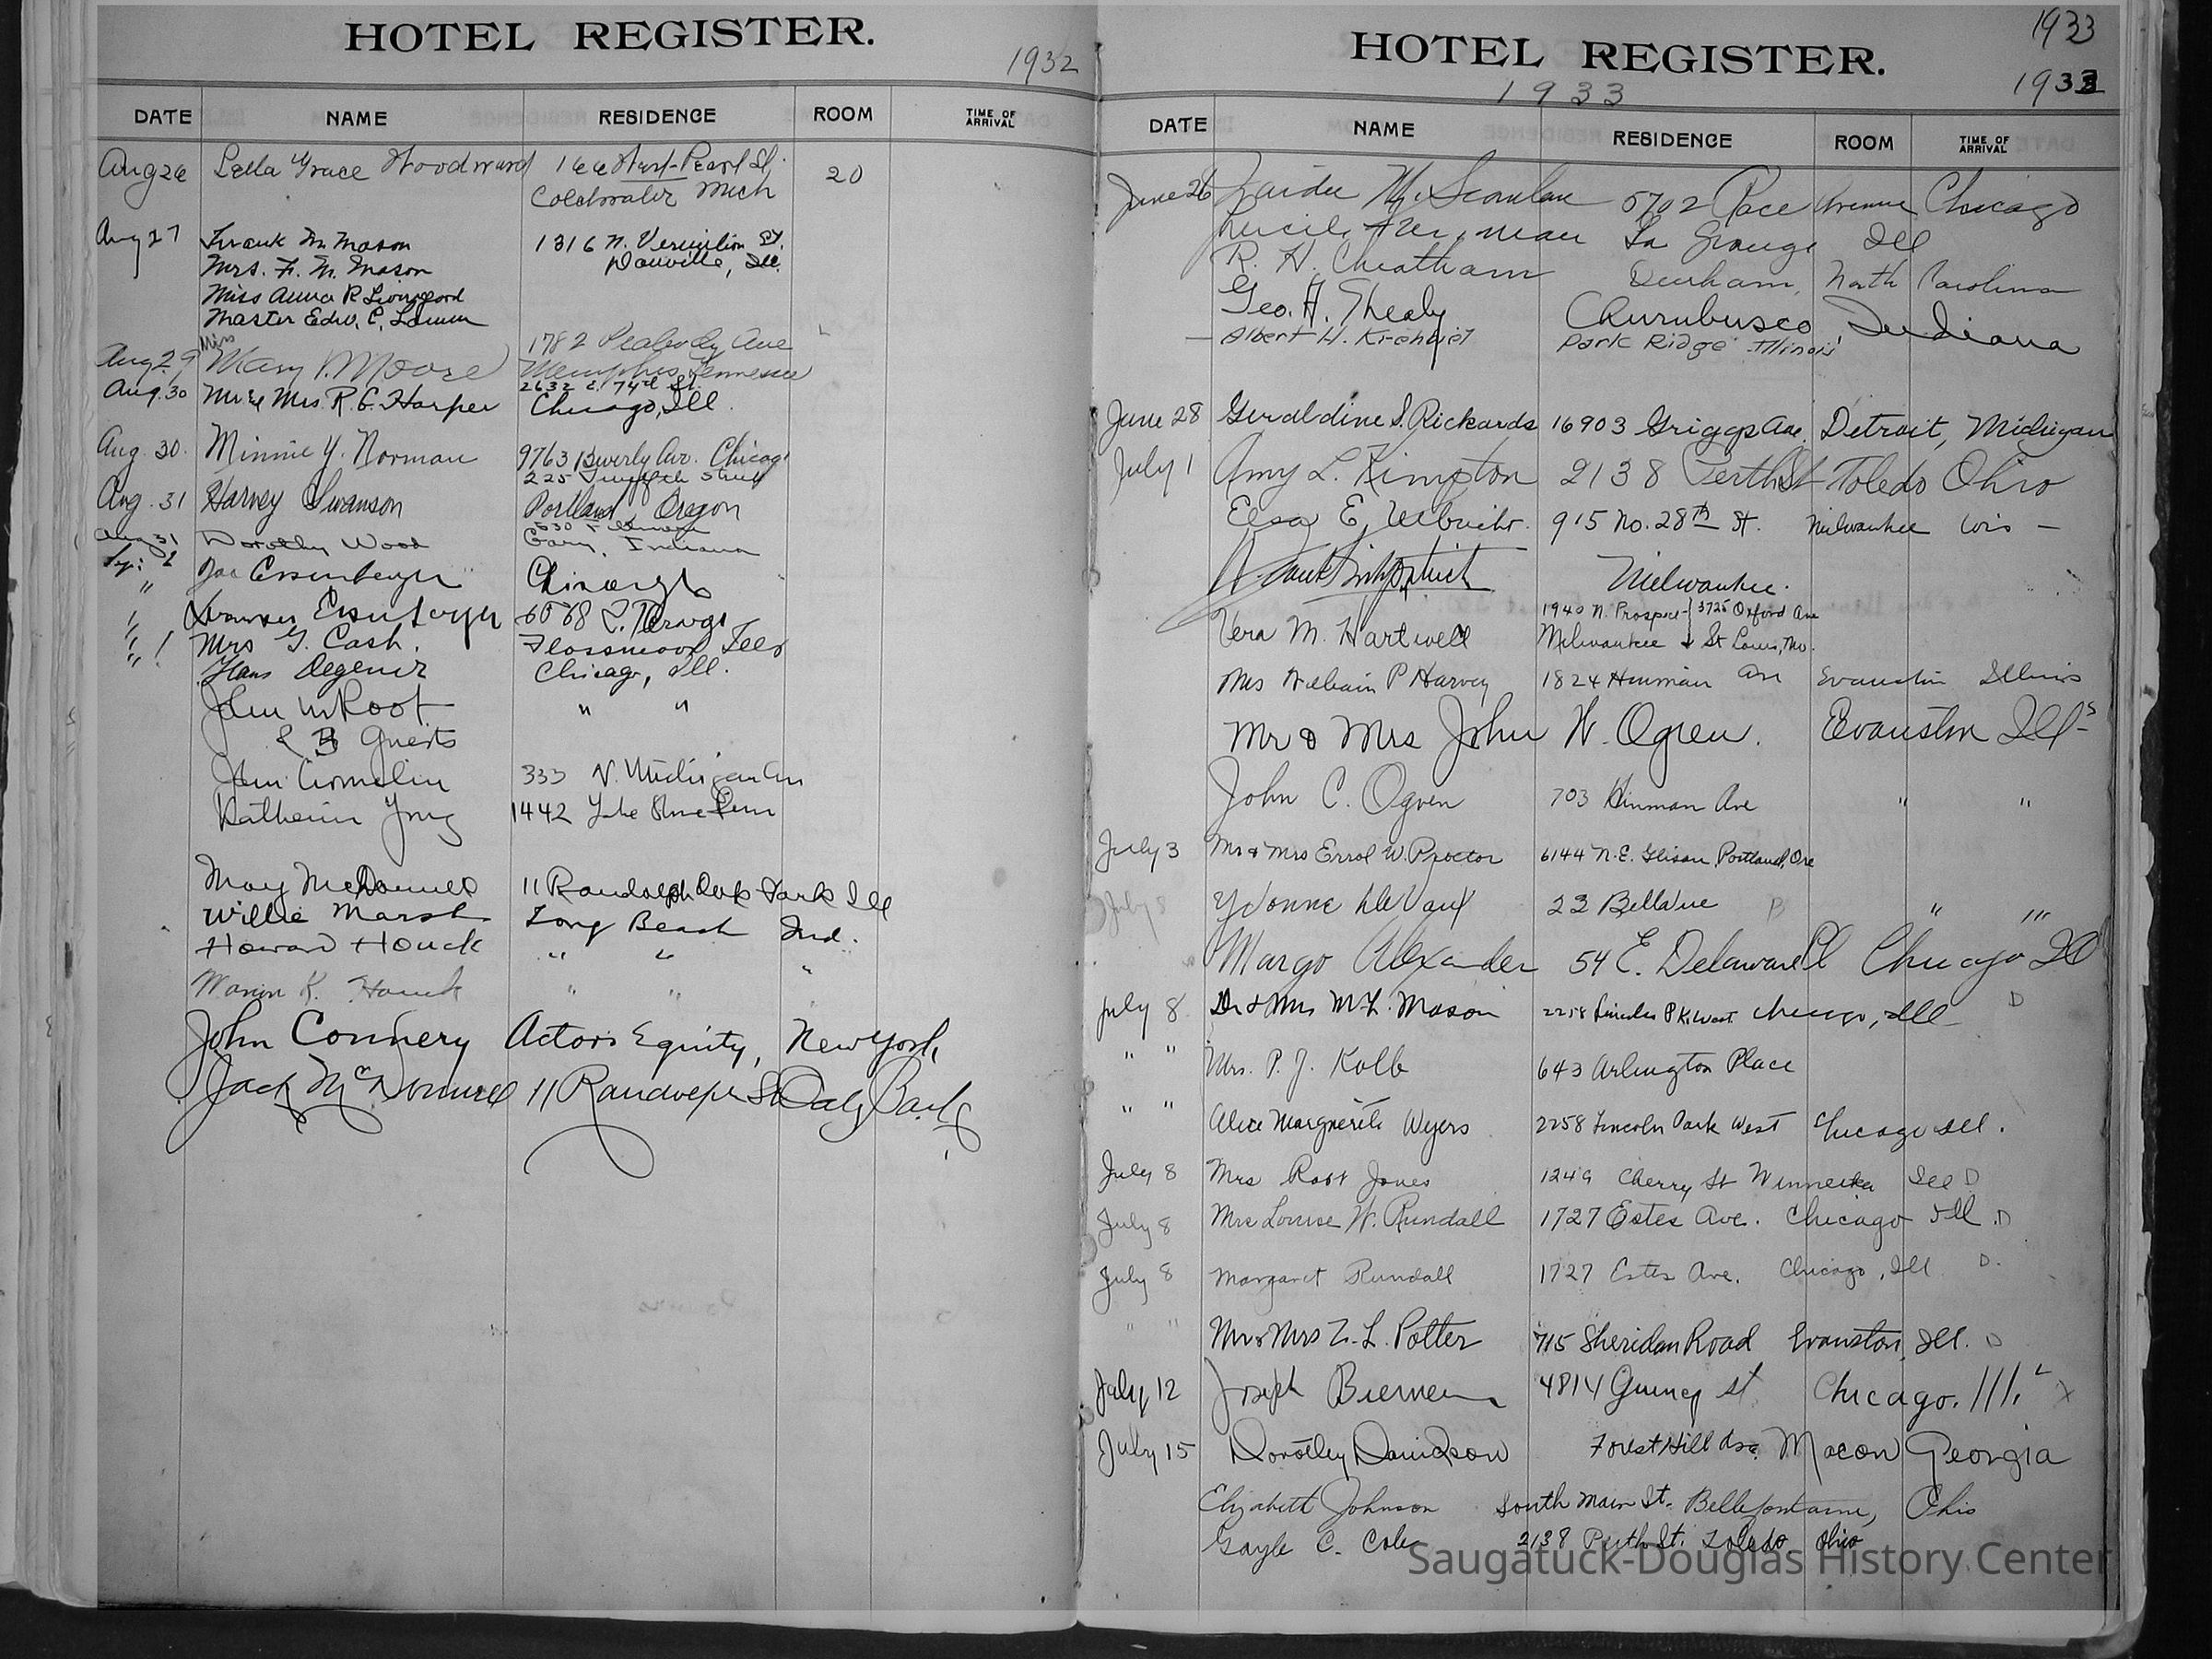 HOTEL REGISTER.
1932
DATE NAME RESIDENCE ROOM TIME OF ARRIVAL
Aug 26 Lella Grace Woodward 166 West Pearl St. 20
Coldwater Mich
Aug 27 Frank M. Mason 1316 N. Vermilion St.
Mrs. F. M. Mason Danville, Ill.
Miss Anna R
Master Edw. C.
Miss 1782 Peabody Ave
Aug 29 Mary V. Moore Memphis Tennessee
2632 E. 74th St.
Aug. 30 Mr & Mrs. R. G. Harper Chicago, Ill.
Aug. 30. Minnie Y. Norman 9763 Beverly Av. Chicago
225 Street
Aug. 31 Harvey Swanson Portland, Oregon
530
Aug 31 Dorothy Wood Gary, Indiana
Chicago
"
" Mrs G. Cash. Flossmoor Ills
" Hans Degener Chicago, Ill.
John W Root " "
& 3 Guests
333 N. Michigan Av
Katherine 1442 Lake Shore
May McDonnell 11 Randolph Oak Park Ill
Willie Marsh Long Beach Ind.
Howard Houck " " "
Marion K. Houck " " "
John Connery Actors Equity, New York,
Jack McDonnell 11 Randolph St Oak Park
HOTEL REGISTER.
1933
1933
1933
DATE NAME RESIDENCE ROOM TIME OF ARRIVAL
June 26 M. Scanlan 5702 Race Avenue Chicago
La Grange Ill
R. H. Cheatham Durham, North Carolina
Geo. H. Shealy Churubusco, Indiana
Albert H. Krehbiel Park Ridge Illinois
June 28 Geraldine S. Rickards 16903 Griggs Ave. Detroit, Michigan
July 1 Amy L. Kimpton 2138 Perth St Toledo Ohio
Elsa E. Ulbricht. 915 No. 28th St. Milwaukee Wis —
Milwaukee.
1940 N. Prospect - 3725 Oxford Ave
Vera M. Hartwell Milwaukee & St Louis, Mo.
Mrs William P Harvey 1824 Hinman Ave Evanston Illinois
Mr & Mrs John W. Ogren. Evanston Ills
John C. Ogren 703 Hinman Ave " "
July 3 Mr & Mrs Errol W. Proctor 6144 N.E. Glisan, Portland, Ore
July 8 Yvonne DeVaux 22 Bellevue " "
Margo Alexander 54 E. Delaware Pl Chicago Ill
July 8 Dr & Mrs M. L. Mason 2258 Lincoln Pk. West Chicago, Ill D
" " Mrs. P. J. Kolb 643 Arlington Place
" " Alice Marguerite Wyers 2258 Lincoln Park West Chicago Ill.
July 8 Mrs Robt Jones 1249 Cherry St Winnetka Ill D
July 8 Mrs Louise W. Rundall 1727 Estes Ave. Chicago Ill. D
July 8 Margaret Rundall 1727 Estes Ave. Chicago, Ill D.
" " Mr & Mrs Z. L. Potter 715 Sheridan Road Evanston, Ill. D
July 12 Joseph 4814 Quincy St Chicago. Ill.
July 15 Dorothy Davidson Forest Hill Macon Georgia
Elizabeth Johnson South Main St. Bellefontaine, Ohio
Gayle C. Cole 2138 Perth St. Toledo Ohio
Saugatuck-Douglas History Center